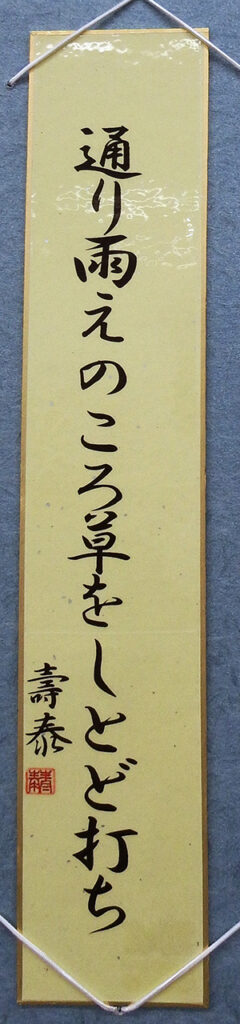 通り雨えのころ草をしとど打ち
壽泰